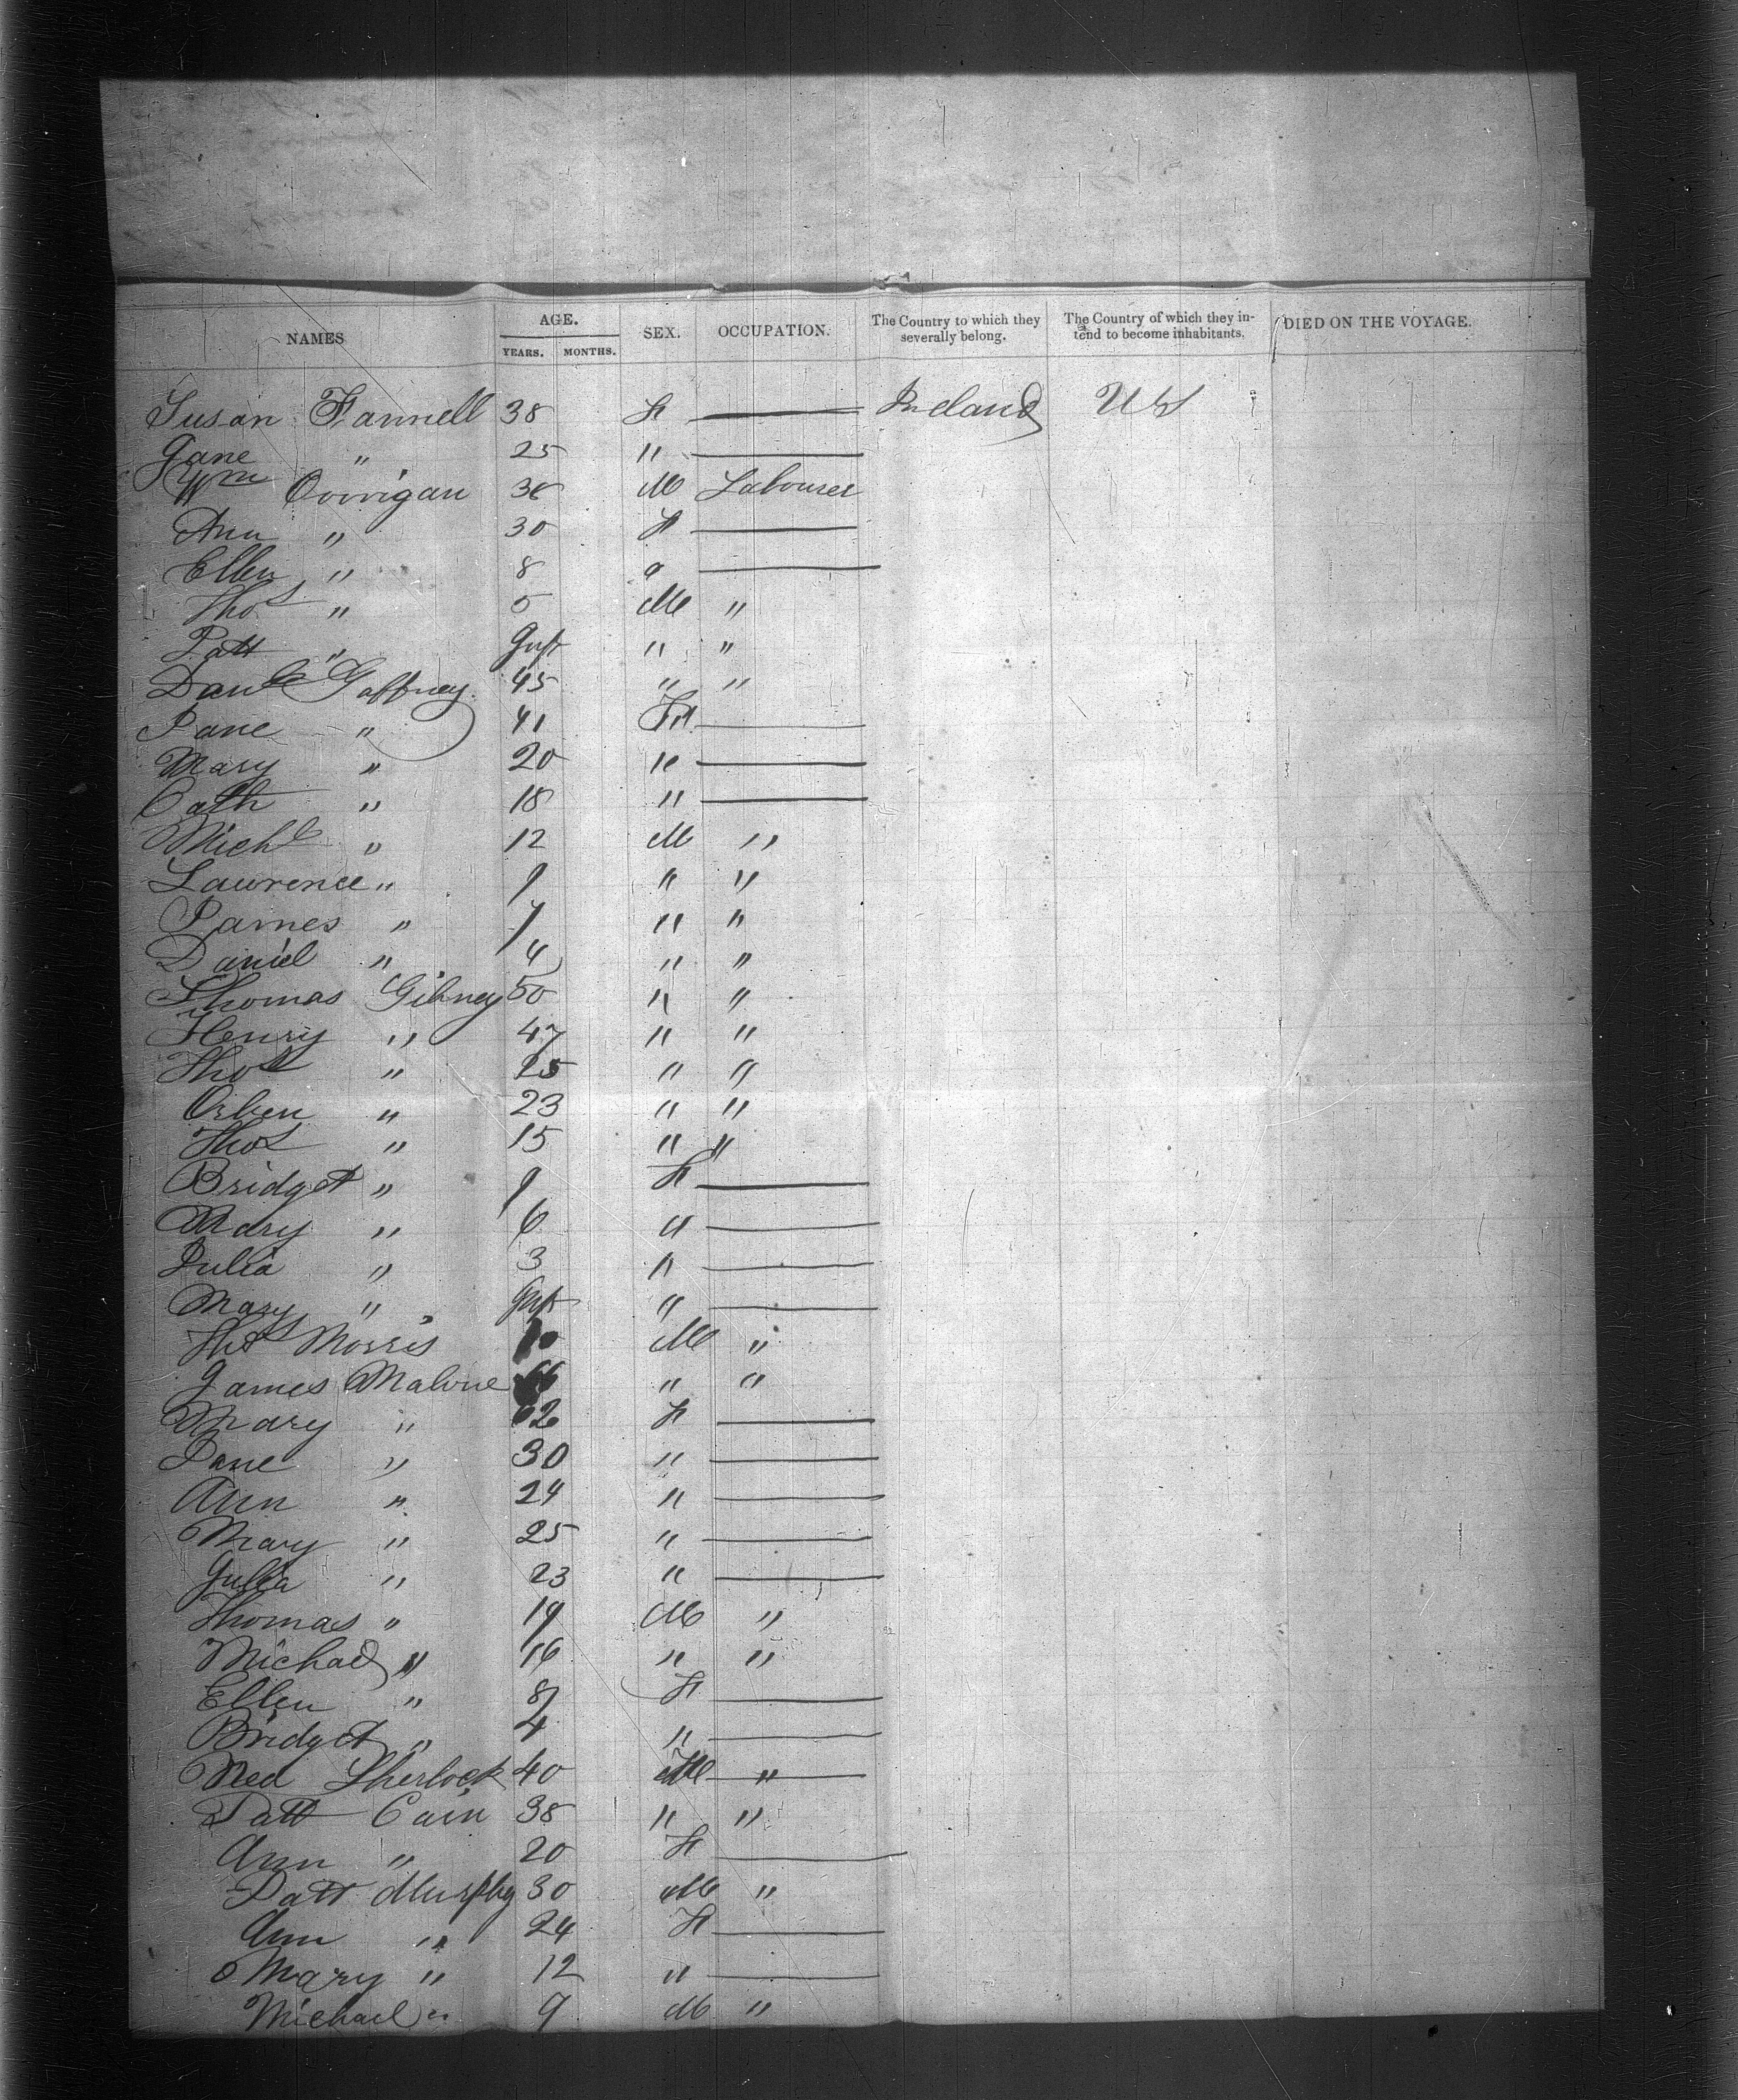 NAMES AGE. YEARS. MONTHS. SEX. OCCUPATION. The Country to which they severally belong. The Country of which they intend to become inhabitants. DIED ON THE VOYAGE.
Susan Fannell 38 F —— Ireland US
Jane " 25 " ——
Wm Corrigan 36 M Labourer
Ann " 30 F ——
Ellen " 8 " ——
Thos " 5 M "
Patt " Inft " "
Danl Gaffney 45 " "
Jane " 41 F ——
Mary " 20 " ——
Cath " 18 " ——
Michl " 12 M "
Lawrence " 9 " "
James " 7 " "
Daniel " 4 " "
Thomas Gibney 50 " "
Henry " 47 " "
Thos " 25 " "
" 23 " "
Thos " 15 " "
Bridget " 9 F ——
Mary " 6 " ——
Julia " 3 " ——
Mary " Inft " ——
Thos Morris M "
James Malone " "
Mary " 62 F ——
Jane " 30 " ——
Ann " 24 " ——
Mary " 25 " ——
Julia " 23 " ——
Thomas " 19 M "
Michael " 16 " "
Ellen " 8 F ——
Bridget " 4 " ——
Ned Sherlock 40 M "
Patt Cain 38 " "
Ann " 20 F ——
Patt Murphy 30 M "
Ann " 24 F ——
Mary " 12 " ——
Michael " 9 M "